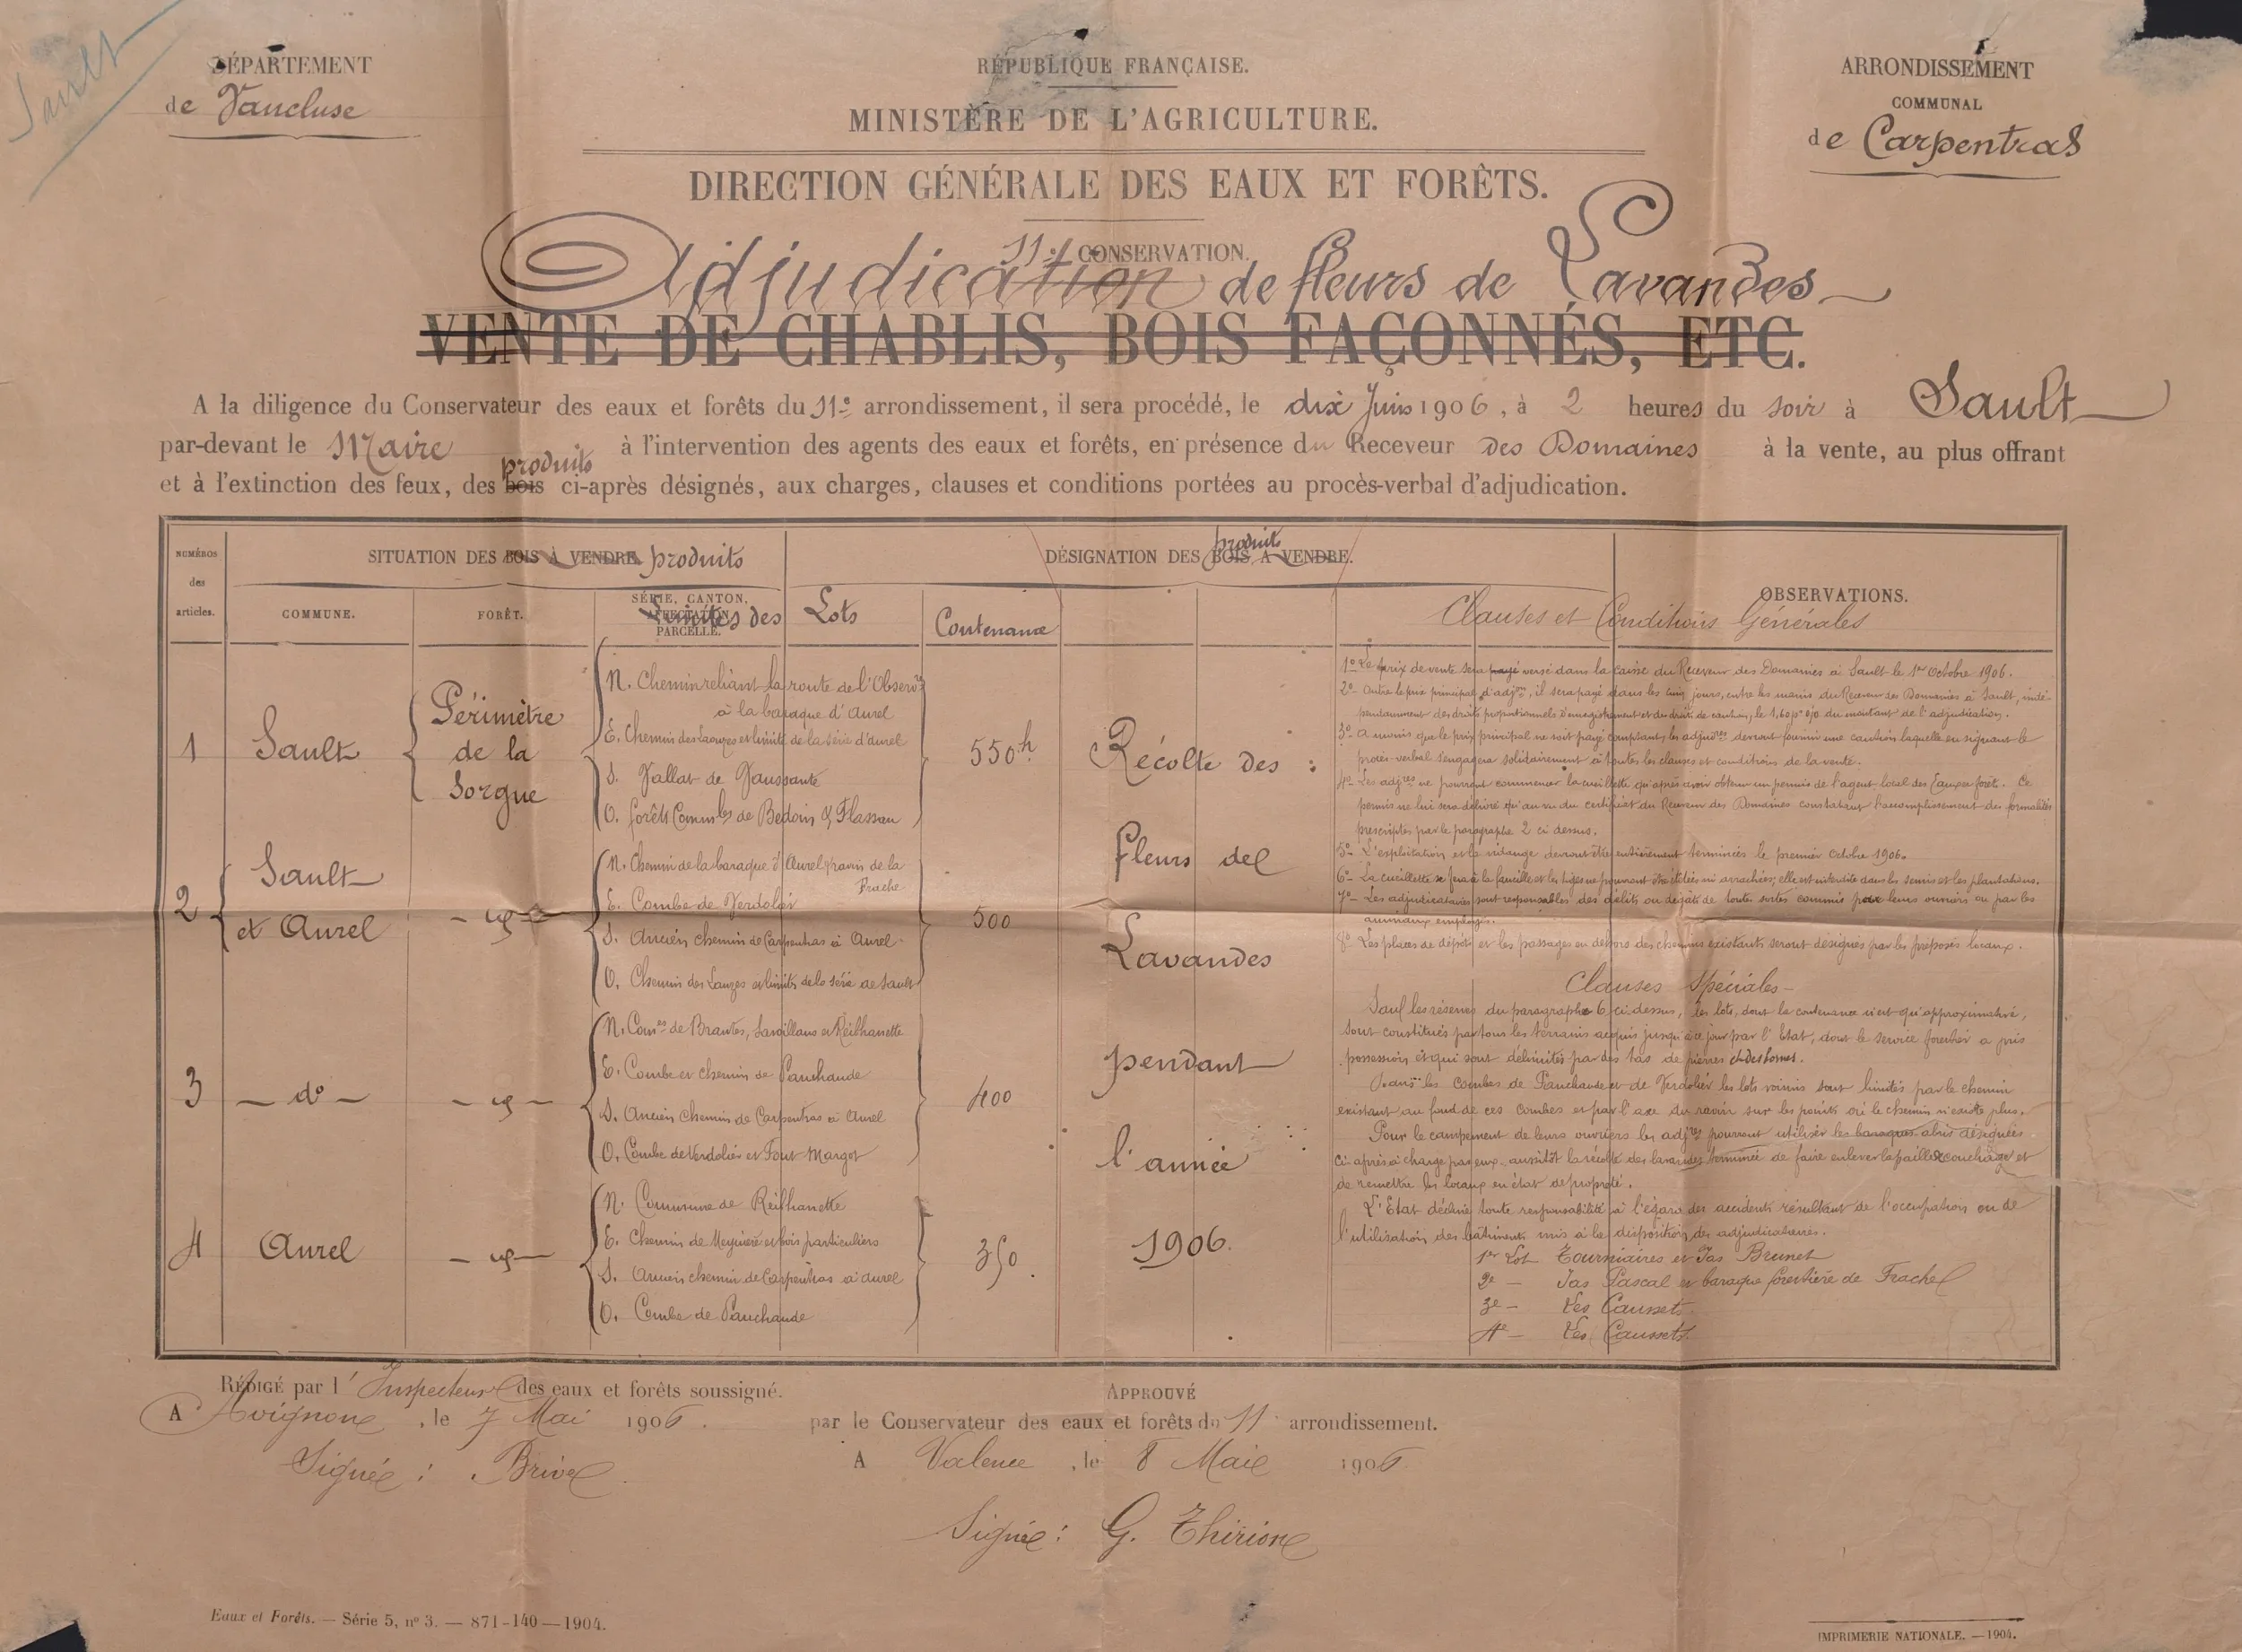 Sault
DÉPARTEMENT
de Vaucluse
RÉPUBLIQUE FRANÇAISE.
MINISTÈRE DE L'AGRICULTURE.
DIRECTION GÉNÉRALE DES EAUX ET FORÊTS.
ARRONDISSEMENT
COMMUNAL
de Carpentras
11e CONSERVATION.
Adjudication de fleurs de Lavandes
VENTE DE CHABLIS, BOIS FAÇONNÉS, ETC.
A la diligence du Conservateur des eaux et forêts du 11e arrondissement, il sera procédé, le dix Juin 1906, à 2 heures du soir à Sault
par-devant le Maire à l'intervention des agents des eaux et forêts, en présence du Receveur des Domaines à la vente, au plus offrant
produits
et à l'extinction des feux, des bois ci-après désignés, aux charges, clauses et conditions portées au procès-verbal d'adjudication.
NUMÉROS des articles.
SITUATION DES BOIS À VENDRE. produits
DÉSIGNATION DES BOIS À VENDRE. produit
OBSERVATIONS.
COMMUNE.
FORÊT.
SÉRIE, CANTON, AFFECTATION, PARCELLE.
Limites des Lots
Contenance
Clauses et Conditions Générales
1
Sault
Périmètre
de la
Sorgue
N. Chemin reliant la route de l'Observre
à la baraque d'Aurel
E. Chemin des Lauzes et limite de la série d'Aurel
S. Vallat de Vaussante
O. forêts Commles de Bedoin & Flassan
550h
2
Sault
et Aurel
N. Chemin de la baraque d'Aurel & ravin de la
Frache
E. Combe de Verdolier
S. Ancien chemin de Carpentras à Aurel
O. Chemin des Lauzes et limite de la série de Sault
500
3
— do —
N. Comes de Brantes, Savoillans et Reilhanette
E. Combe et chemin de Pauchaude
S. Ancien chemin de Carpentras à Aurel
O. Combe de Verdolier et Font Margot
400
4
Aurel
N. Commune de Reilhanette
E. Chemin de et bois particuliers
S. Ancien chemin de Carpentras à Aurel
O. Combe de Pauchaude
350
Récolte des
fleurs de
Lavandes
pendant
l'année
1906.
1o Le prix de vente sera payé versé dans la caisse du Receveur des Domaines à Sault le 1er Octobre 1906.
2o Outre le prix principal d'adjon, il sera payé dans les cinq jours, entre les mains du Receveur des Domaines à Sault, indé-
pendamment des droits proportionnels d'enregistrement et du droit de caution, le 1,60 p% du montant de l'adjudication.
3o A moins que le prix principal ne soit payé comptant, les adjres devront fournir une caution laquelle en signant le
procès-verbal s'engagera solidairement à toutes les clauses et conditions de la vente.
4o Les adjres ne pourront commencer la cueillette qu'après avoir obtenu un permis de l'agent local des Eaux et forêts. Ce
permis ne lui sera délivré qu'au vu du certificat du Receveur des Domaines constatant l'accomplissement des formalités
prescriptes par le paragraphe 2 ci dessus.
5o L'exploitation et la vidange devront être entièrement terminées le premier Octobre 1906.
6o La cueillette se fera à la faucille et les tiges ne pourront être ni arrachées; elle est interdite dans les semis et les plantations.
7o Les adjudicataires sont responsables des délits ou dégâts de toutes sortes commis par leurs ouvriers ou par les
animaux employés.
8o Les places de dépôt et les passages en dehors des chemins existants seront désignés par les préposés locaux.
Clauses Spéciales
Sauf les réserves du paragraphe 6 ci dessus, les lots, dont la contenance n'est qu'approximative,
sont constitués par tous les terrains acquis jusqu'à ce jour par l'État, dont le service forestier a pris
possession et qui sont délimités par des tas de pierres et des bornes.
Dans les combes de Pauchaude et de Verdolier les lots voisins sont limités par le chemin
existant au fond de ces combes et par l'axe du ravin sur les points où le chemin n'existe plus.
Pour le campement de leurs ouvriers les adjres pourront utiliser les baraques abris désignées
ci-après à charge par eux, aussitôt la récolte des lavandes terminée de faire enlever la paille de couchage et
de remettre les locaux en état de propreté.
L'État décline toute responsabilité à l'égard des accidents résultant de l'occupation ou de
l'utilisation des bâtiments mis à la disposition des adjudicataires.
1er Lot Tourniaires et Jas Brunet
2e — Jas Pascal et baraque forestière de Frache
3e — Les Caussets.
4e — Les Caussets.
RÉDIGÉ par l'Inspecteur des eaux et forêts soussigné.
A Avignon, le 7 Mai 1906.
Signé: Brive
APPROUVÉ
par le Conservateur des eaux et forêts du 11 arrondissement.
A Valence, le 8 Mai 1906
Signé: G. Thirion
Eaux et Forêts. — Série 5, no 3. — 871-140 — 1904.
IMPRIMERIE NATIONALE. — 1904.